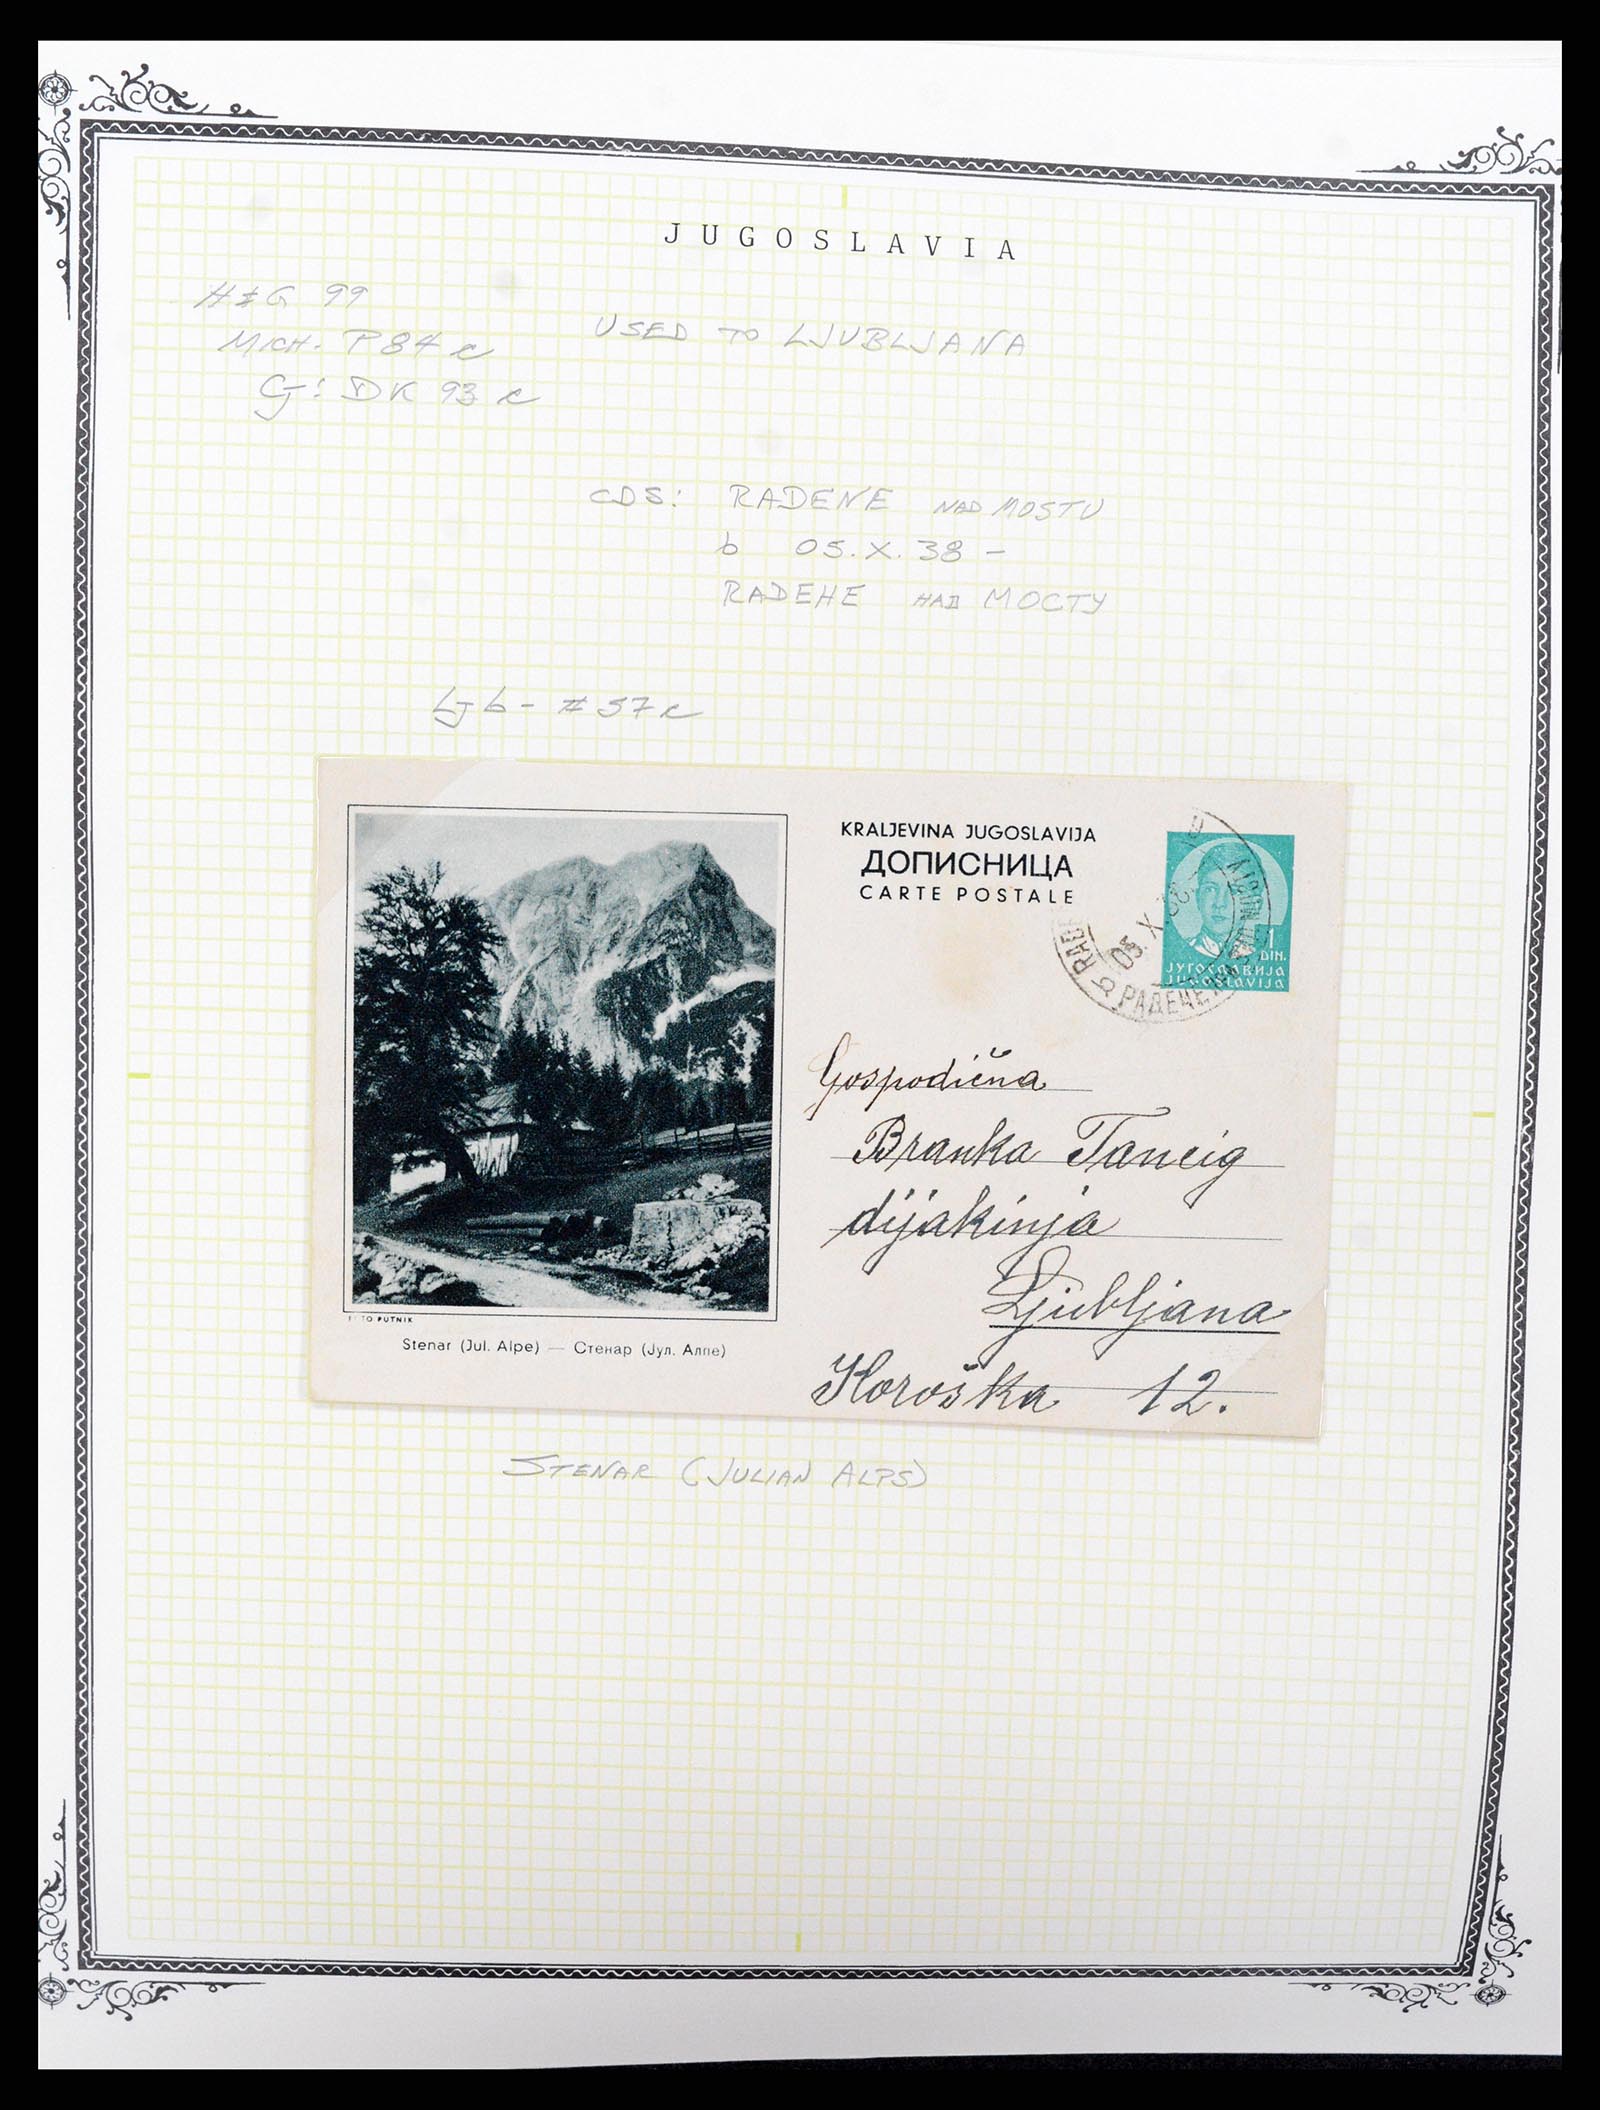 JUGOSLAVIA
H&G 99
MICH. P84c
USED TO LJUBLJANA
G: DK 93c
CDS: RADENE NAD MOSTU
b 05.X.38 –
RADEHE НАД МОСТУ
Ljb – #57c
KRALJEVINA JUGOSLAVIJA
ДОПИСНИЦА
CARTE POSTALE
05. X
b РАДЕНЕ
1
DIN.
ЈУГОСЛАВИЈА
JUGOSLAVIJA
Gospodična
Branka Tancig
dijakinja
Ljubljana
Koroška 12.
FOTO PUTNIK
Stenar (Jul. Alpe) — Стенар (Јул. Алпе)
STENAR (JULIAN ALPS)